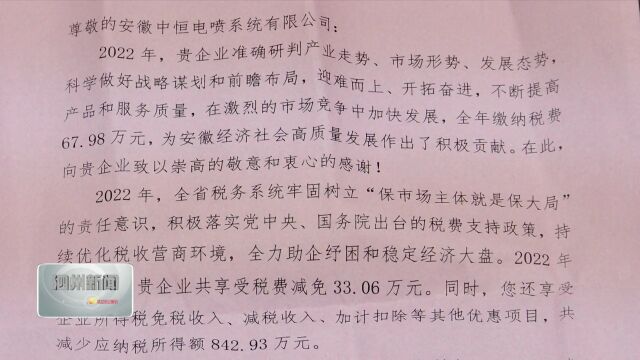 尊敬的安徽中恒电喷系统有限公司：
2022 年，贵企业准确研判产业走势、市场形势、发展态势，
科学做好战略谋划和前瞻布局，迎难而上、开拓奋进，不断提高
产品和服务质量，在激烈的市场竞争中加快发展，全年缴纳税费
67.98 万元，为安徽经济社会高质量发展作出了积极贡献。在此，
向贵企业致以崇高的敬意和衷心的感谢！
2022 年，全省税务系统牢固树立“保市场主体就是保大局”
的责任意识，积极落实党中央、国务院出台的税费支持政策，持
续优化税收营商环境，全力助企纾困和稳定经济大盘。2022 年
贵企业共享受税费减免 33.06 万元。同时，您还享受
企业所得税免税收入、减税收入、加计扣除等其他优惠项目，共
减少应纳税所得额 842.93 万元。
泗州新闻